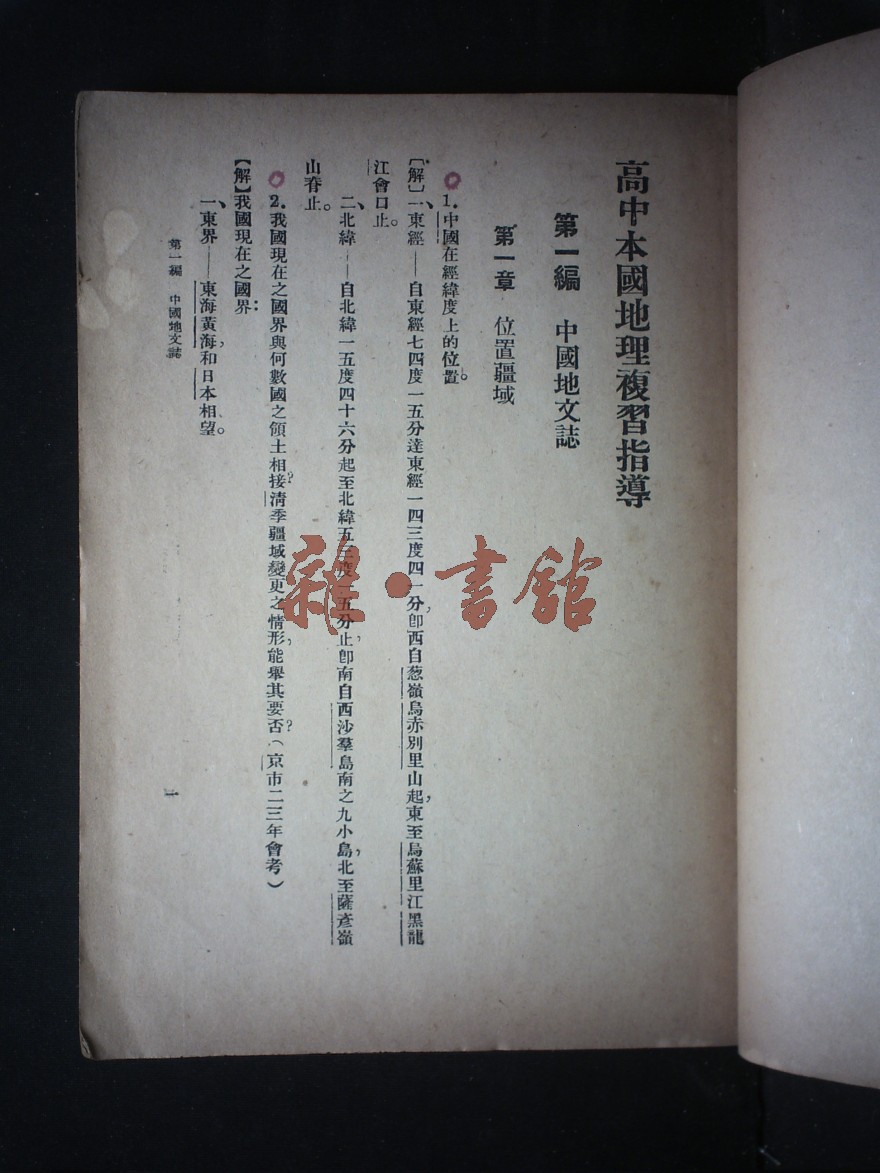 高中本國地理複習指導
第一編　中國地文誌
第一章　位置疆域
1.中國在經緯度上的位置。
〔解〕一、東經——自東經七四度一五分達東經一四三度四一分，卽西自葱嶺烏赤別里山起，東至烏蘇里江黑龍
江會口止。
二、北緯——自北緯一五度四十六分起至北緯五三度一五分止，卽南自西沙羣島南之九小島，北至薩彥嶺
山脊止。
2.我國現在之國界與何數國之領土相接？清季疆域變更之情形，能舉其要否？（京市二三年會考）
【解】我國現在之國界：
一、東界——東海黃海，和日本相望。
第一編　中國地文誌
一
雜·書館